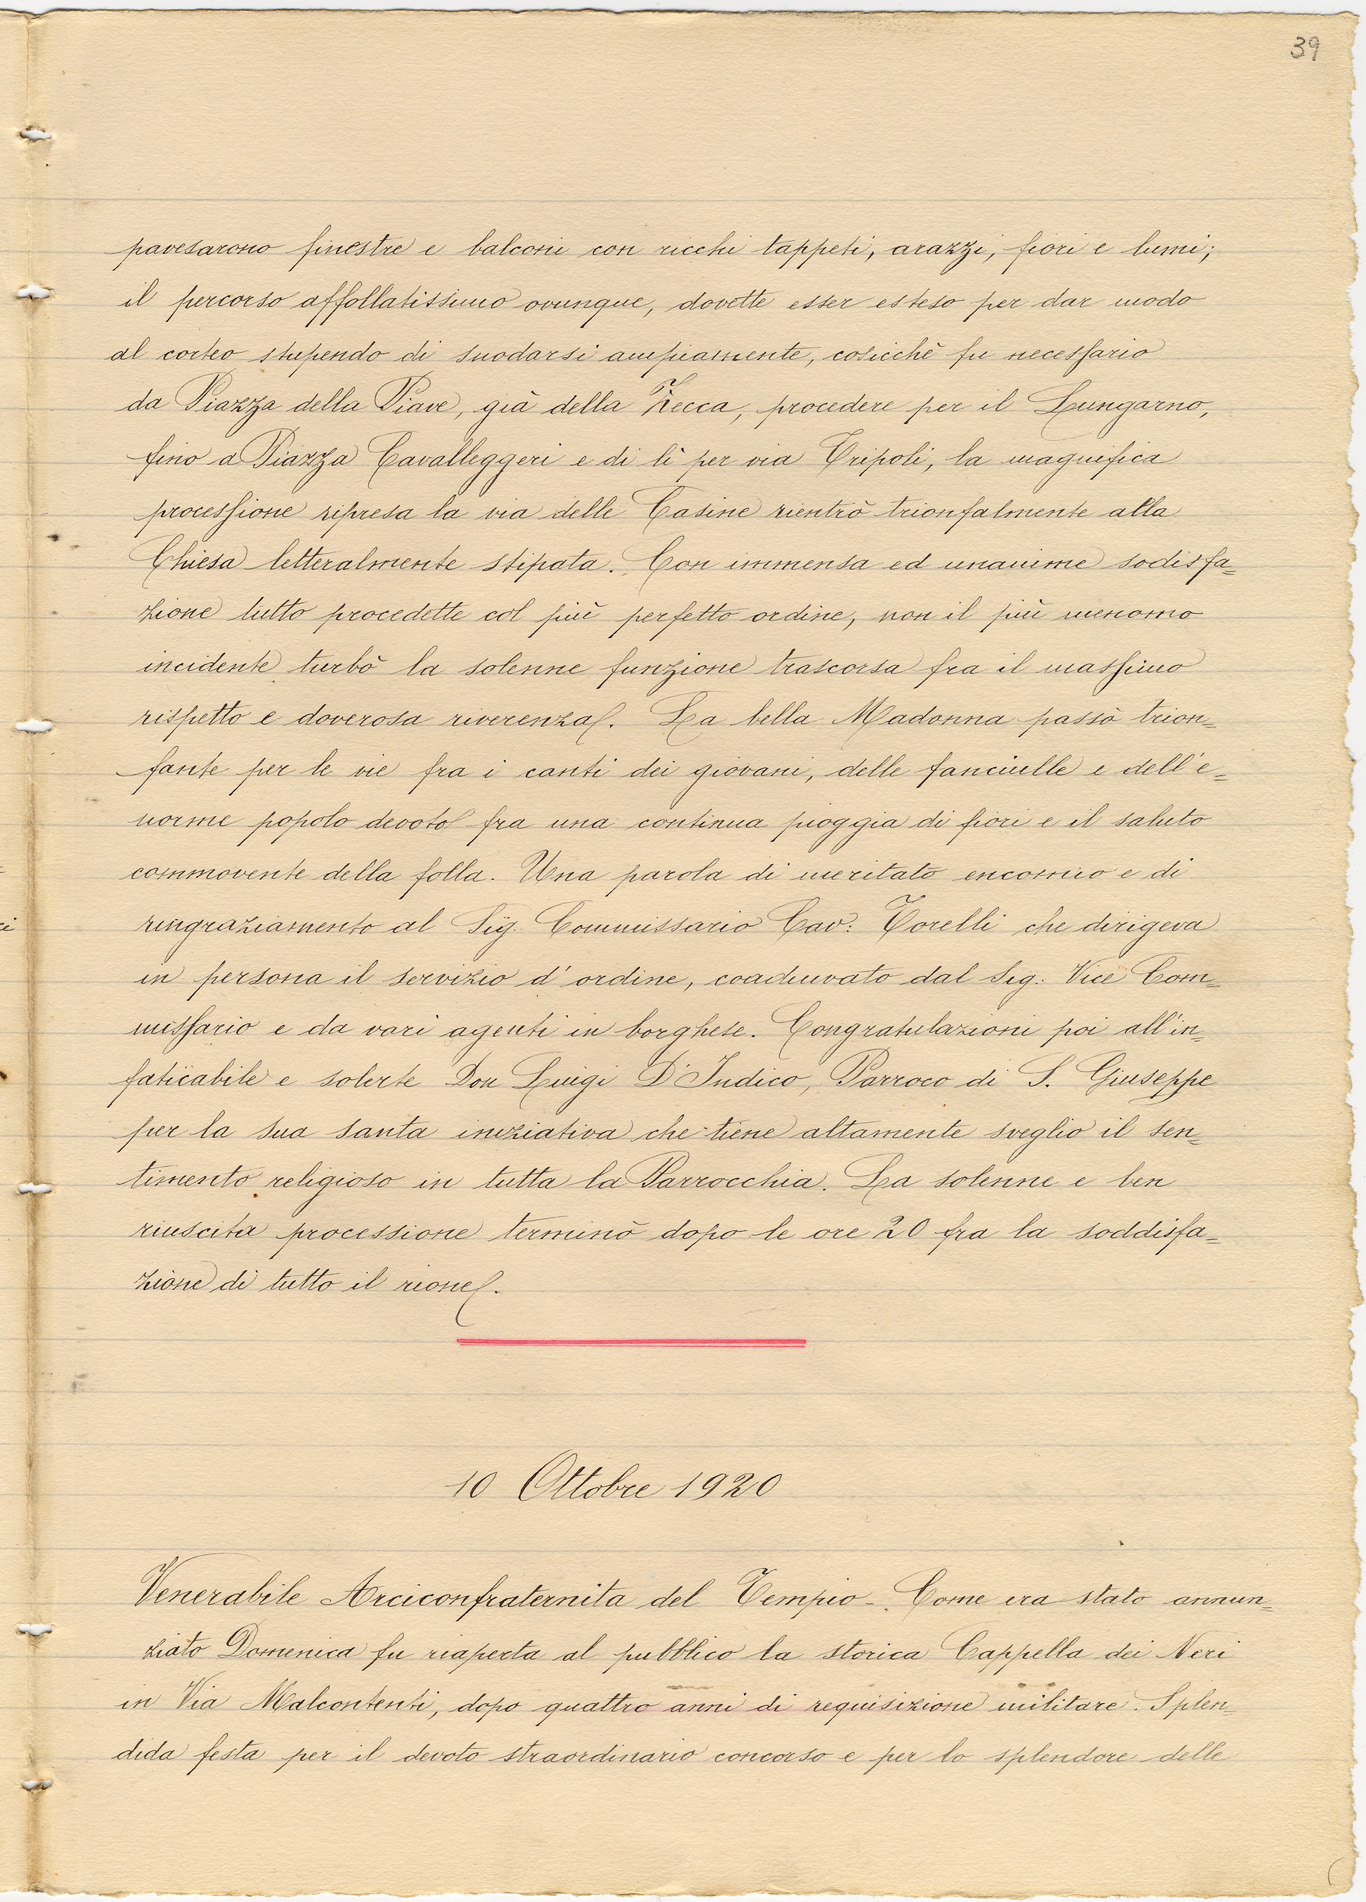 39
pavesarono finestre e balconi con ricchi tappeti, arazzi, fiori e lumi;
il percorso affollatissimo ovunque, dovette esser esteso per dar modo
al corteo stupendo di snodarsi ampiamente, cosicchè fu necessario
da Piazza della Piave, già della Zecca, procedere per il Lungarno,
fino a Piazza Cavalleggeri e di lì per via Tripoli, la magnifica
processione ripresa la via delle Casine rientrò trionfalmente alla
Chiesa letteralmente stipata. Con immensa ed unanime sodisfa=
zione tutto procedette col più perfetto ordine, non il più menomo
incidente turbò la solenne funzione trascorsa fra il massimo
rispetto e doverosa riverenza. La bella Madonna passò trion=
fante per le vie fra i canti dei giovani, delle fanciulle e dell'e=
norme popolo devoto fra una continua pioggia di fiori e il saluto
commovente della folla. Una parola di meritato encomio e di
ringraziamento al Sig. Commissario Cav: Torelli che dirigeva
in persona il servizio d'ordine, coadiuvato dal Sig. Vice Com=
missario e da vari agenti in borghese. Congratulazioni poi all'in=
faticabile e solerte Don Luigi D'Indico, Parroco di S. Giuseppe
per la sua santa iniziativa che tiene altamente sveglio il sen=
timento religioso in tutta la Parrocchia. La solenne e ben
riuscita processione terminò dopo le ore 20 fra la soddisfa=
zione di tutto il rione.
10 Ottobre 1920
Venerabile Arciconfraternita del Tempio - Come era stato annun=
ziato Domenica fu riaperta al pubblico la storica Cappella dei Neri
in Via Malcontenti, dopo quattro anni di requisizione militare. Splen=
dida festa per il devoto straordinario concorso e per lo splendore delle